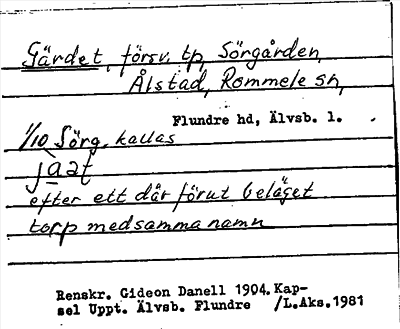 Gärdet, försv. tp, Sörgården,
Ålstad, Rommele sn,
Flundre hd, Älvsb. l.
1/10 Sörg. kallas
jaat
efter ett där förut beläget
torp med samma namn
Renskr. Gideon Danell 1904. Kap-
sel Uppt. Älvsb. Flundre /L.Aks.1981